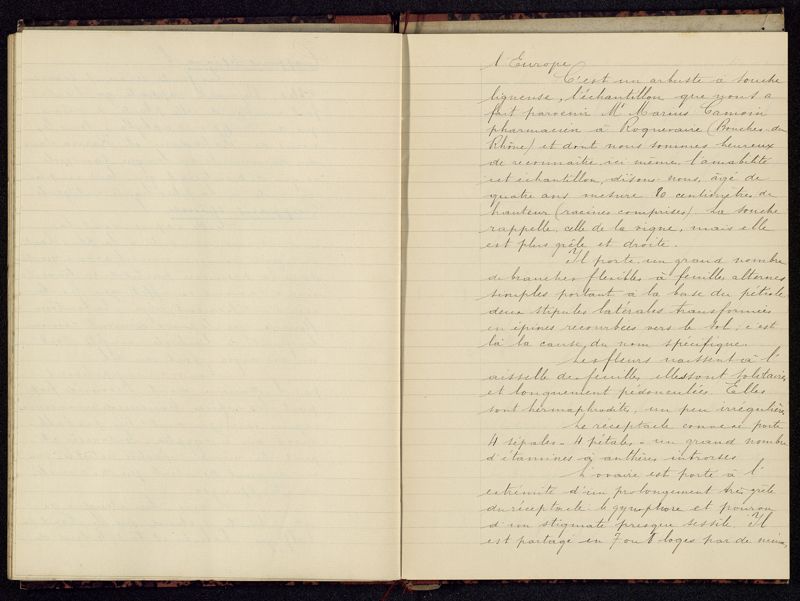 l'Europe
C'est un arbuste à souche
ligneuse, l'échantillon que nous a
fait parvenir Mr Marius Camoin
pharmacien à Roquevaire (Bouches du
Rhône) et dont nous sommes heureux
de reconnaitre ici même l'amabilité
cet échantillon, disons-nous, âgé de
quatre ans mesure 80 centimètres de
hauteur (racines comprises). La souche
rappelle celle de la vigne, mais elle
est plus grêle et droite.
Il porte un grand nombre
de branches flexibles à feuilles alternes
simples portant à la base du pétiole
deux stipules latérales transformées
en épines recourbées vers le sol; c'est
là la cause du nom spécifique.
Les fleurs naissent à l'
aisselle des feuilles, elles sont solitaires
et longuement pédonculées. Elles
sont hermaphrodites, un peu irrégulières
Le réceptacle convexe porte
4 sépales - 4 pétales - un grand nombre
d'étamines à anthères introrses
L'ovaire est porté à l'
extrémité d'un prolongement très grêle
du réceptacle le gynophore et pourvu
d'un stigmate presque sessile. Il
est partagé en 7 ou 8 loges par de